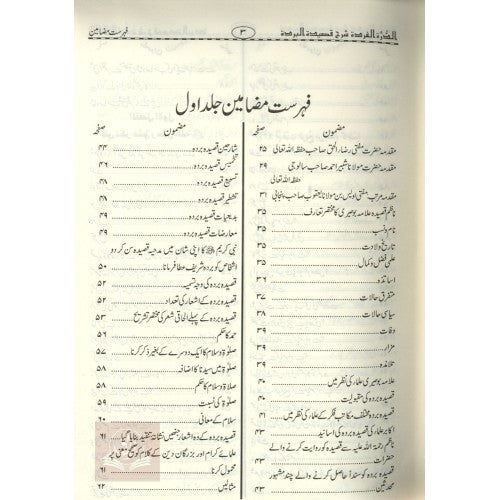 الدُّرّة الفردة شرح قصيدة البردة
۳
فہرست مضامین
فہرست مضامین جلد اول
مضمون صفحہ
مقدمہ حضرت مفتی رضاء الحق صاحب حفظہ اللہ تعالی ۲۵
مقدمہ حضرت مولانا شبیر احمد صاحب سالوجی ۲۹
حفظہ اللہ تعالی
مقدمہ مرتب مفتی اویس بن مولانا یعقوب صاحب پنچابی
ناظم قصیدہ علامہ بوصیری کا مختصر تعارف ۳۵
نام ونسب ۳۵
تاریخ ولادت ۳۵
علمی فضل وکمال ۳۵
اساتذہ ۳۶
متفرق حالات ۳۷
سیاسی حالات ۳۸
وفات ۳۹
مزار ۳۹
تلامذہ ۳۹
علامہ بوصیری علماء کی نظر میں ۴۰
قصیدہ بردہ کی مقبولیت ۴۰
قصیدہ بردہ مختلف مکاتب فکر کے علماء کی نظر میں ۴۱
اکابر علماء کی قصیدہ بردہ کی اسانید ۴۳
ناظم رحمۃ اللہ علیہ سے قصیدہ کو روایت کرنے والے
حضرات ۴۳
قصیدہ بردہ کو سنداً حاصل کرنے والے چند مشہور
محدثین ۴۳
مضمون صفحہ
شارحین قصیدہ بردہ ۴۴
تخمیس قصیدہ بردہ ۴۶
تسبیع قصیدہ بردہ ۴۸
تشطیر قصیدہ بردہ ۴۸
بدیعیات قصیدہ بردہ ۴۹
معارضات قصیدہ بردہ ۴۹
نبی کریم ﷺ کا اپنی شان میں مدحیہ قصیدہ سن کر دو
اشخاص کو بردہ شریف عطا فرمانا ۵۰
قصیدہ بردہ کی وجہ تسمیہ ۵۲
قصیدہ بردہ کے اشعار کی تعداد ۵۲
قصیدہ بردہ کے پہلے الحاقی شعر کی مختصر تشریح ۵۳
حمد کا حکم ۵۶
صلوٰۃ وسلام کا ایک دوسرے کے بغیر ذکر کرنا ۵۷
صلوٰۃ میں سیدنا کا اضافہ ۵۸
صلوٰۃ وسلام کا حکم ۵۸
صلوٰۃ کی نسبت ۵۹
سلام کے معانی ۶۰
قصیدہ بردہ کے وہ اشعار جنھیں نشانہ تنقید بنایا گیا ۶۱
علمائے کرام اور بزرگان دین کے کلام کو صحیح معنی پر
محمول کرنا ۶۱
مثالیں ۶۲